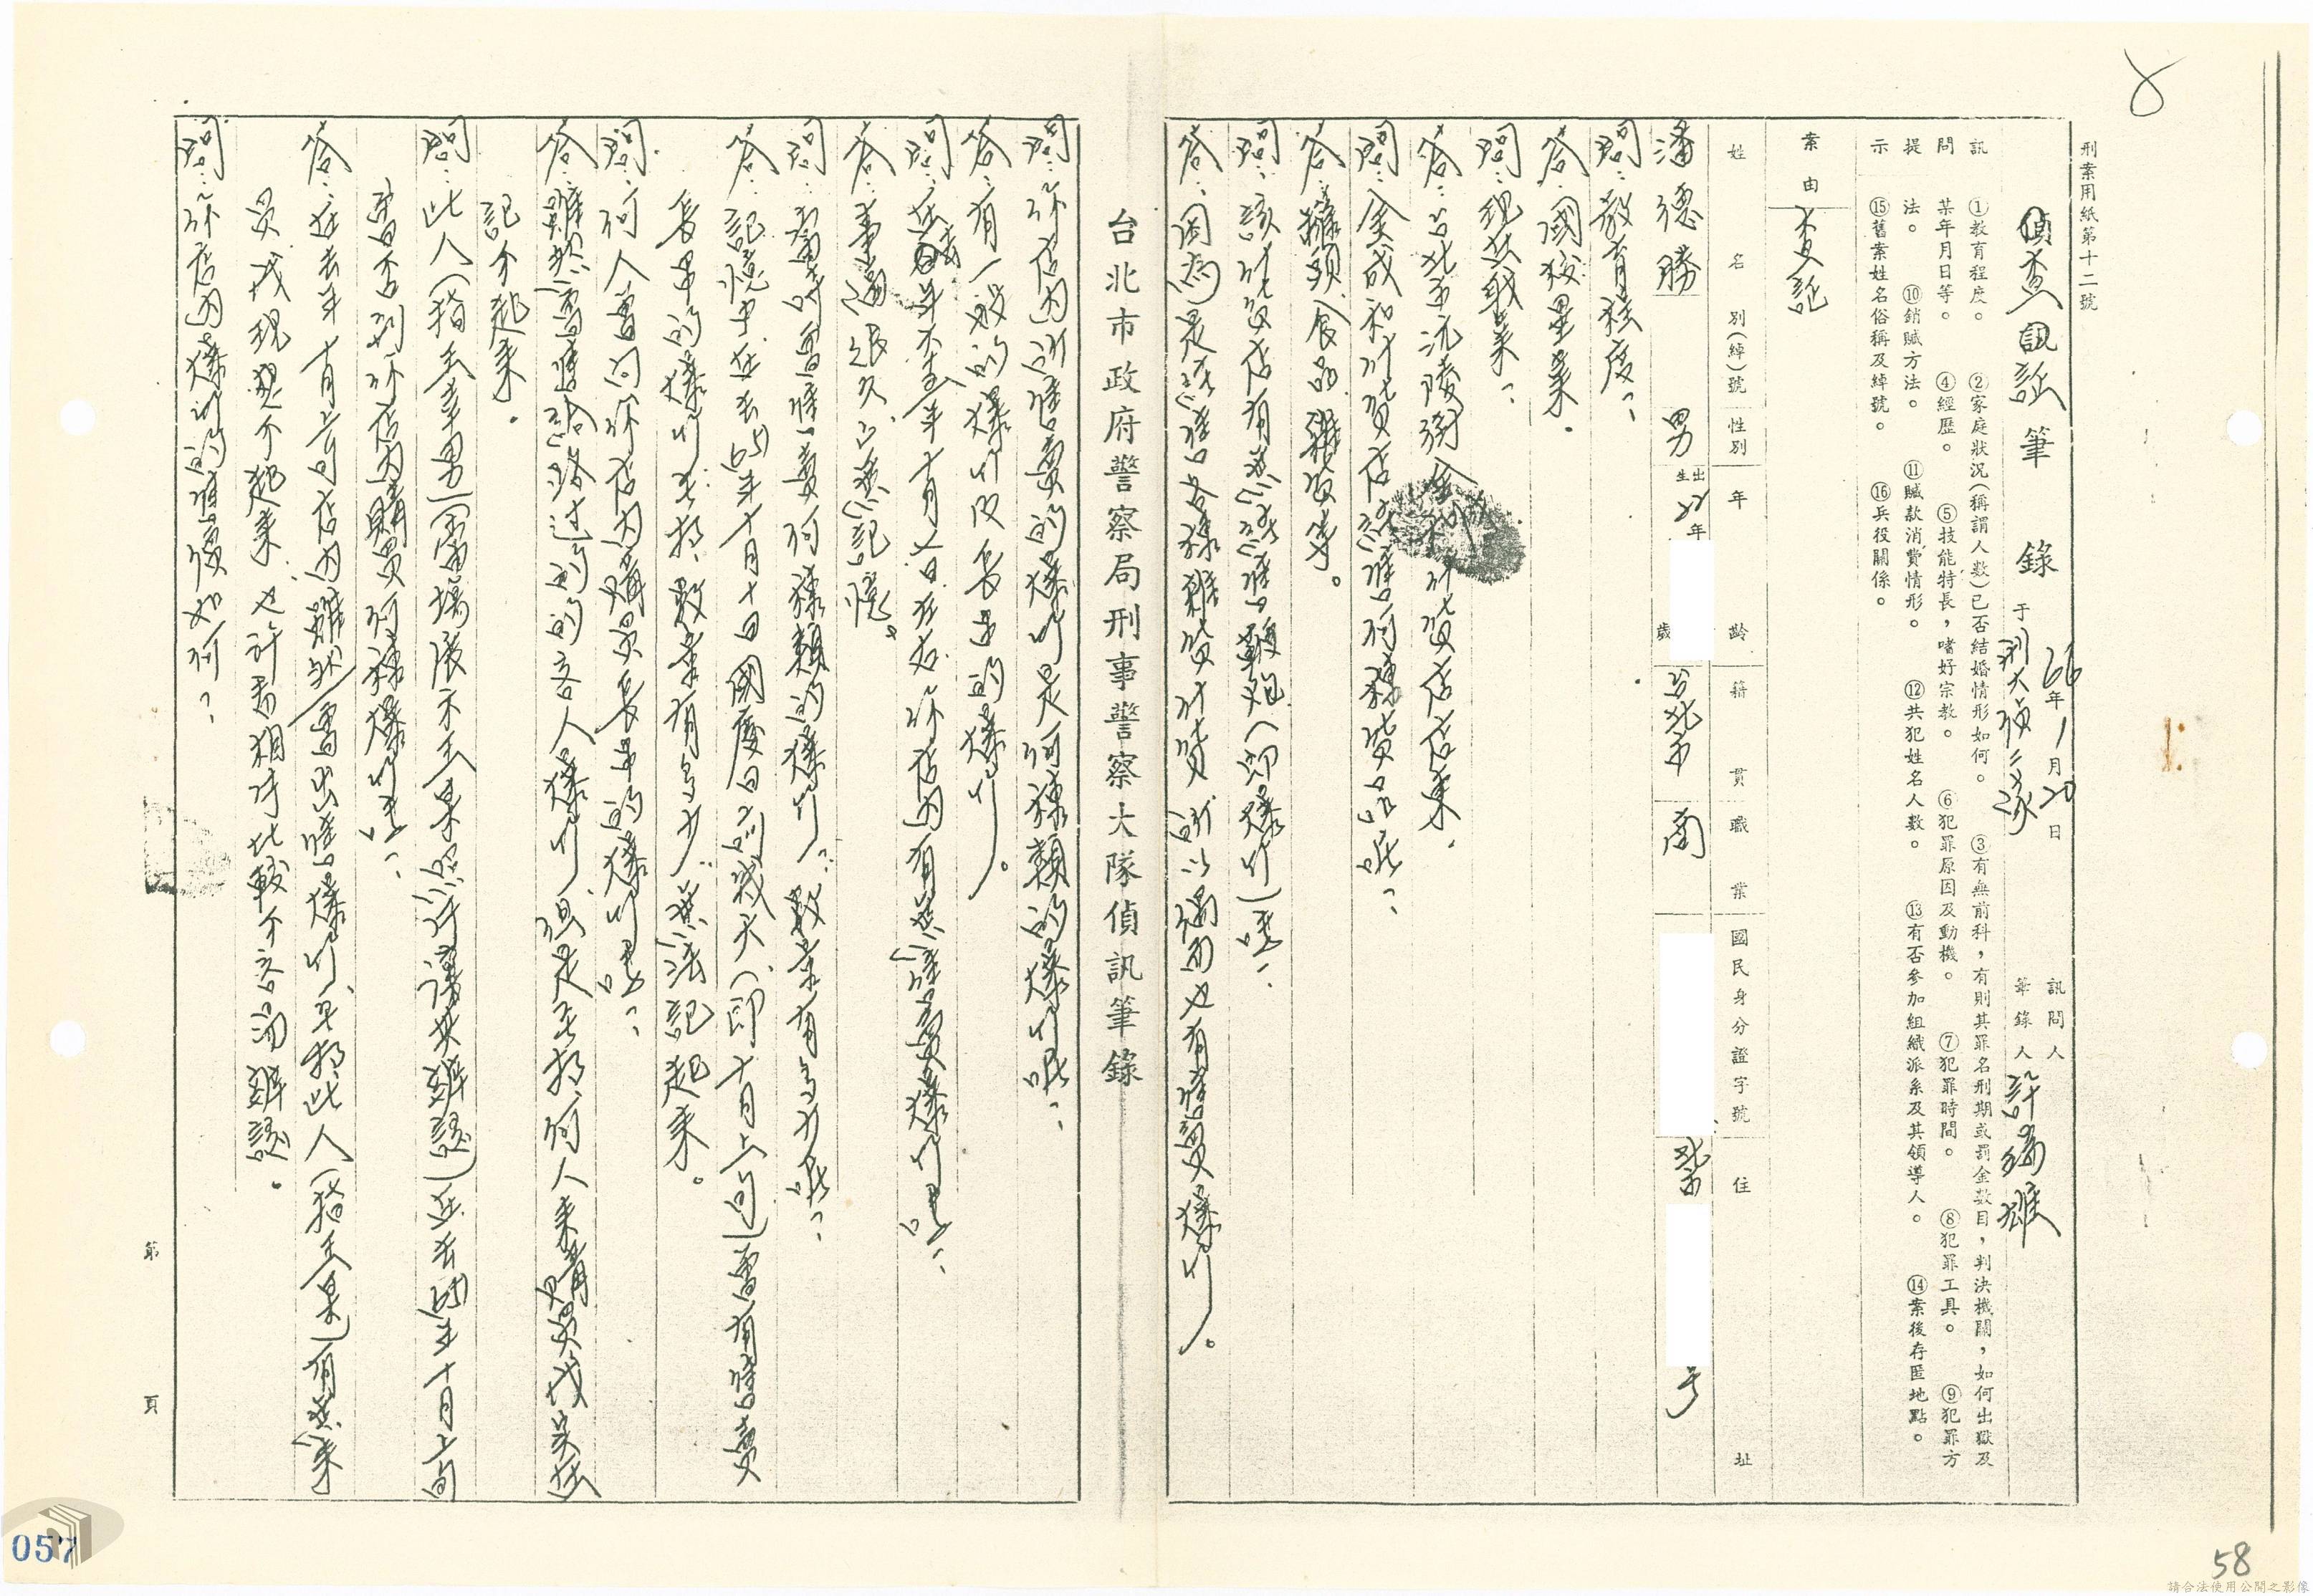 8
刑案用紙第十二號
偵查訊証筆錄 于 66年1月20日 刑大偵三隊 訊問人 筆錄人 許瑞雄
訊問提示
①教育程度。 ②家庭狀況(稱謂人數)已否結婚情形如何。 ③有無前科,有則其罪名刑期或罰金數目,判決機關,如何出獄及
某年月日等。 ④經歷。 ⑤技能特長,嗜好宗教。 ⑥犯罪原因及動機。 ⑦犯罪時間。 ⑧犯罪工具。 ⑨犯罪方
法。 ⑩銷贓方法。 ⑪贓款消費情形。 ⑫共犯姓名人數。 ⑬有否參加組織派系及其領導人。 ⑭案後存匿地點。
⑮舊案姓名俗稱及綽號。 ⑯兵役關係。
案由 查証
姓名 別(綽)號 性別 年齡 籍貫 職業 國民身分證字號 住址
潘德勝 男 出生22年 歲 台北市 商 北市 号
問:教育程度?
答:國校畢業。
問:現在職業?
答:台北市沅陵街金成和什貨店店東。
問:金成和什貨店經售何種貨品呢?
答:罐頭食品雜貨等。
問:該什貨店有無兼售鞭炮(即爆竹)嗎?
答:因為是經售各樣雜貨什貨所以偶而也有售賣爆竹。
台北市政府警察局刑事警察大隊偵訊筆錄
問:你店內所售賣的爆竹是何種類的爆竹呢?
答:有一般的爆竹及長串的爆竹。
問:在 年十月 日左右你店內有無售賣爆竹嗎?
答:事隔很久已無記憶。
問:當時曾售賣何種類的爆竹?數量有多少呢?
答:記憶中在去(65)年十月十日國慶日前幾天(即十月上旬)曾有售賣
長串的爆竹去,數量有多少,無法記起來。
問:何人曾向你店內購買長串的爆竹嗎?
答:雖然曾售給路过的客人爆竹,但是 何人來購買我無法
記不起來。
問:此人(指王幸男)(當場展示王某照片讓其辨認)在去(65)年十月上旬
曾否到你店內購買何種爆竹嗎?
答:在去年十月上旬店內雖然曾出售爆竹, 此人(指王某)有無來
買我現想不起來,也許 相片比較不容易辨認。
問:你店內爆竹的售價如何?
第 頁
057
58
請合法使用公開之影像